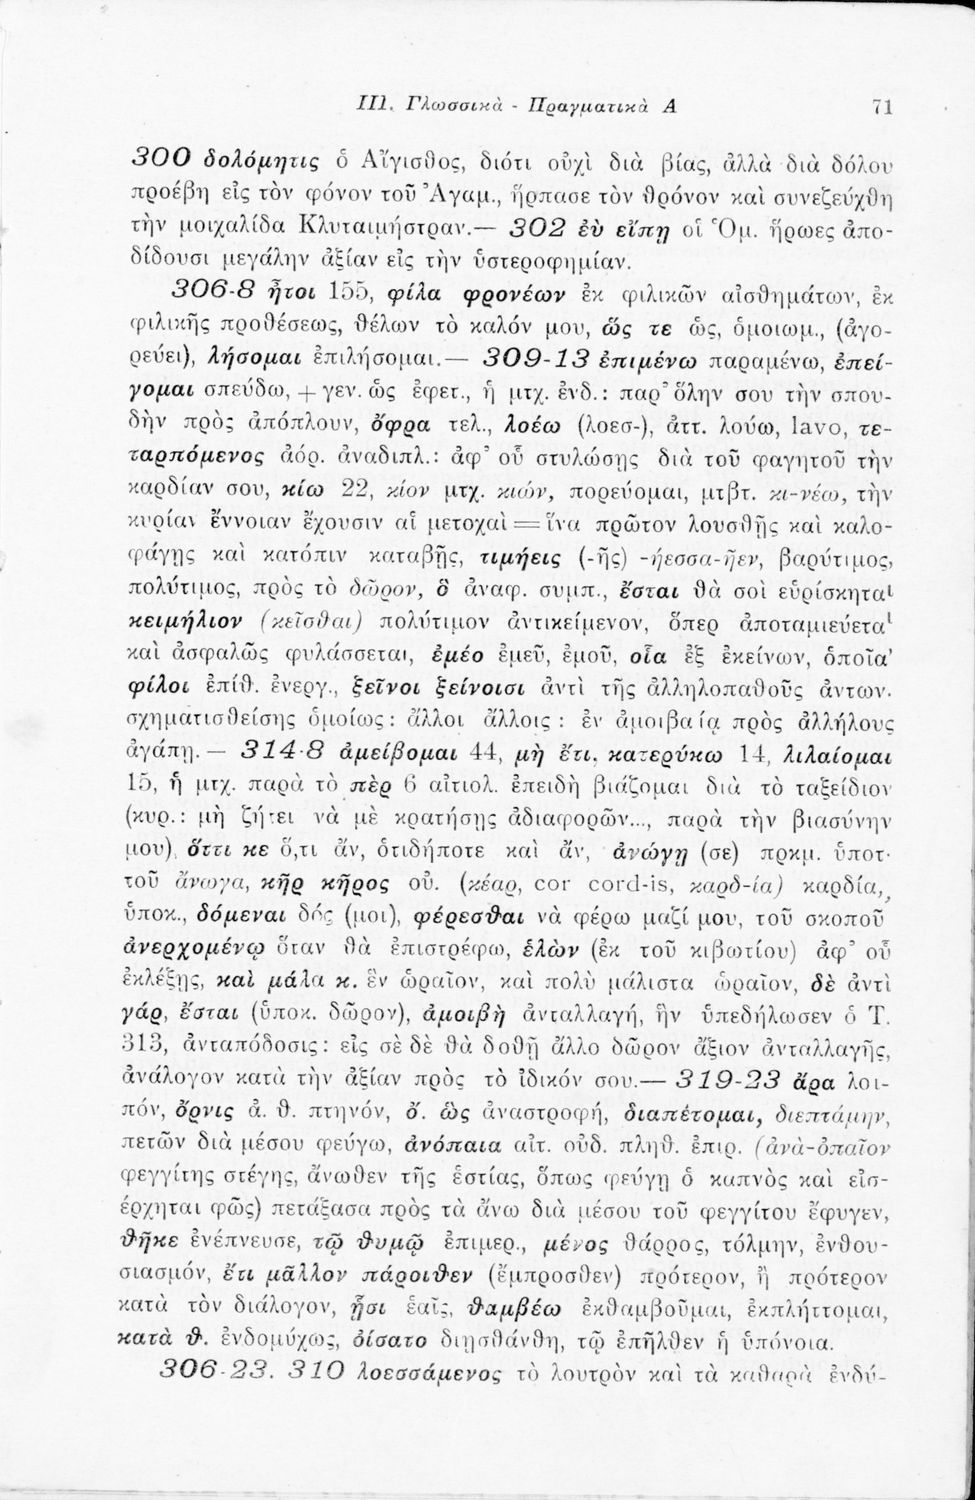 III. Γλωσσικὰ - Πραγματικὰ Α 71
300 δολόμητις ὁ Αἴγισθος, διότι οὐχὶ διὰ βίας, ἀλλὰ διὰ δόλου
προέβη εἰς τὸν φόνον τοῦ Ἀγαμ., ἥρπασε τὸν θρόνον καὶ συνεζεύχθη
τὴν μοιχαλίδα Κλυταιμήστραν.— 302 ἐὺ εἴπῃ οἱ Ὁμ. ἥρωες ἀπο-
δίδουσι μεγάλην ἀξίαν εἰς τὴν ὑστεροφημίαν.
306-8 ἦτοι 155, φίλα φρονέων ἐκ φιλικῶν αἰσθημάτων, ἐκ
φιλικῆς προθέσεως, θέλων τὸ καλόν μου, ὥς τε ὡς, ὁμοιωμ., (ἀγο-
ρεύει), λήσομαι ἐπιλήσομαι.— 309-13 ἐπιμένω παραμένω, ἐπεί-
γομαι σπεύδω, + γεν. ὡς ἐφετ., ἡ μτχ. ἐνδ.: παρ᾽ ὅλην σου τὴν σπου-
δὴν πρὸς ἀπόπλουν, ὄφρα τελ., λοέω (λοεσ-), ἀττ. λούω, lavo, τε-
ταρπόμενος ἀόρ. ἀναδιπλ.: ἀφ᾽ οὗ στυλώσῃς διὰ τοῦ φαγητοῦ τὴν
καρδίαν σου, κίω 22, κίον μτχ. κιών, πορεύομαι, μτβτ. κι-νέω, τὴν
κυρίαν ἔννοιαν ἔχουσιν αἱ μετοχαὶ = ἵνα πρῶτον λουσθῇς καὶ καλο-
φάγῃς καὶ κατόπιν καταβῇς, τιμήεις (-ῆς) -ήεσσα-ῆεν, βαρύτιμος,
πολύτιμος, πρὸς τὸ δῶρον, ὃ ἀναφ. συμπ., ἔσται θὰ σοὶ εὑρίσκηται
κειμήλιον (κεῖσθαι) πολύτιμον ἀντικείμενον, ὅπερ ἀποταμιεύεται
καὶ ἀσφαλῶς φυλάσσεται, ἐμέο ἐμεῦ, ἐμοῦ, οἷα ἐξ ἐκείνων, ὁποῖα
φίλοι ἐπίθ. ἐνεργ., ξεῖνοι ξείνοισι ἀντὶ τῆς ἀλληλοπαθοῦς ἀντων.
σχηματισθείσης ὁμοίως: ἄλλοι ἄλλοις : ἐν ἀμοιβαίᾳ πρὸς ἀλλήλους
ἀγάπῃ.— 314-8 ἀμείβομαι 44, μὴ ἔτι, κατερύκω 14, λιλαίομαι
15, ἡ μτχ. παρὰ τὸ πὲρ 6 αἰτιολ. ἐπειδὴ βιάζομαι διὰ τὸ ταξείδιον
(κυρ.: μὴ ζήτει νὰ μὲ κρατήσῃς ἀδιαφορῶν..., παρὰ τὴν βιασύνην
μου), ὅττι κε ὅ,τι ἄν, ὁτιδήποτε καὶ ἄν, ἀνώγῃ (σε) πρκμ. ὑποτ.
τοῦ ἄνωγα, κῆρ κῆρος οὐ. (κέαρ, cor cord-is, καρδ-ία) καρδία,
ὑποκ., δόμεναι δός (μοι), φέρεσθαι νὰ φέρω μαζί μου, τοῦ σκοποῦ
ἀνερχομένῳ ὅταν θὰ ἐπιστρέφω, ἑλὼν (ἐκ τοῦ κιβωτίου) ἀφ᾽ οὗ
ἐκλέξῃς, καὶ μάλα κ. ἓν ὡραῖον, καὶ πολὺ μάλιστα ὡραῖον, δὲ ἀντὶ
γάρ, ἔσται (ὑποκ. δῶρον), ἀμοιβὴ ἀνταλλαγή, ἣν ὑπεδήλωσεν ὁ Τ.
313, ἀνταπόδοσις: εἰς σὲ δὲ θὰ δοθῇ ἄλλο δῶρον ἄξιον ἀνταλλαγῆς,
ἀνάλογον κατὰ τὴν ἀξίαν πρὸς τὸ ἰδικόν σου.— 319-23 ἄρα λοι-
πόν, ὄρνις ἀ. θ. πτηνόν, ὄ. ὣς ἀναστροφή, διαπέτομαι, διεπτάμην,
πετῶν διὰ μέσου φεύγω, ἀνόπαια αἰτ. οὐδ. πληθ. ἐπιρ. (ἀνὰ-ὀπαῖον
φεγγίτης στέγης, ἄνωθεν τῆς ἑστίας, ὅπως φεύγῃ ὁ καπνὸς καὶ εἰσ-
έρχηται φῶς) πετάξασα πρὸς τὰ ἄνω διὰ μέσου τοῦ φεγγίτου ἔφυγεν,
θῆκε ἐνέπνευσε, τῷ θυμῷ ἐπιμερ., μένος θάρρος, τόλμην, ἐνθου-
σιασμόν, ἔτι μᾶλλον πάροιθεν (ἔμπροσθεν) πρότερον, ἢ πρότερον
κατὰ τὸν διάλογον, ᾗσι ἑαῖς, θαμβέω ἐκθαμβοῦμαι, ἐκπλήττομαι,
κατὰ θ. ἐνδομύχως, ὀίσατο διῃσθάνθη, τῷ ἐπῆλθεν ἡ ὑπόνοια.
306-23. 310 λοεσσάμενος τὸ λουτρὸν καὶ τὰ καθαρὰ ἐνδύ-